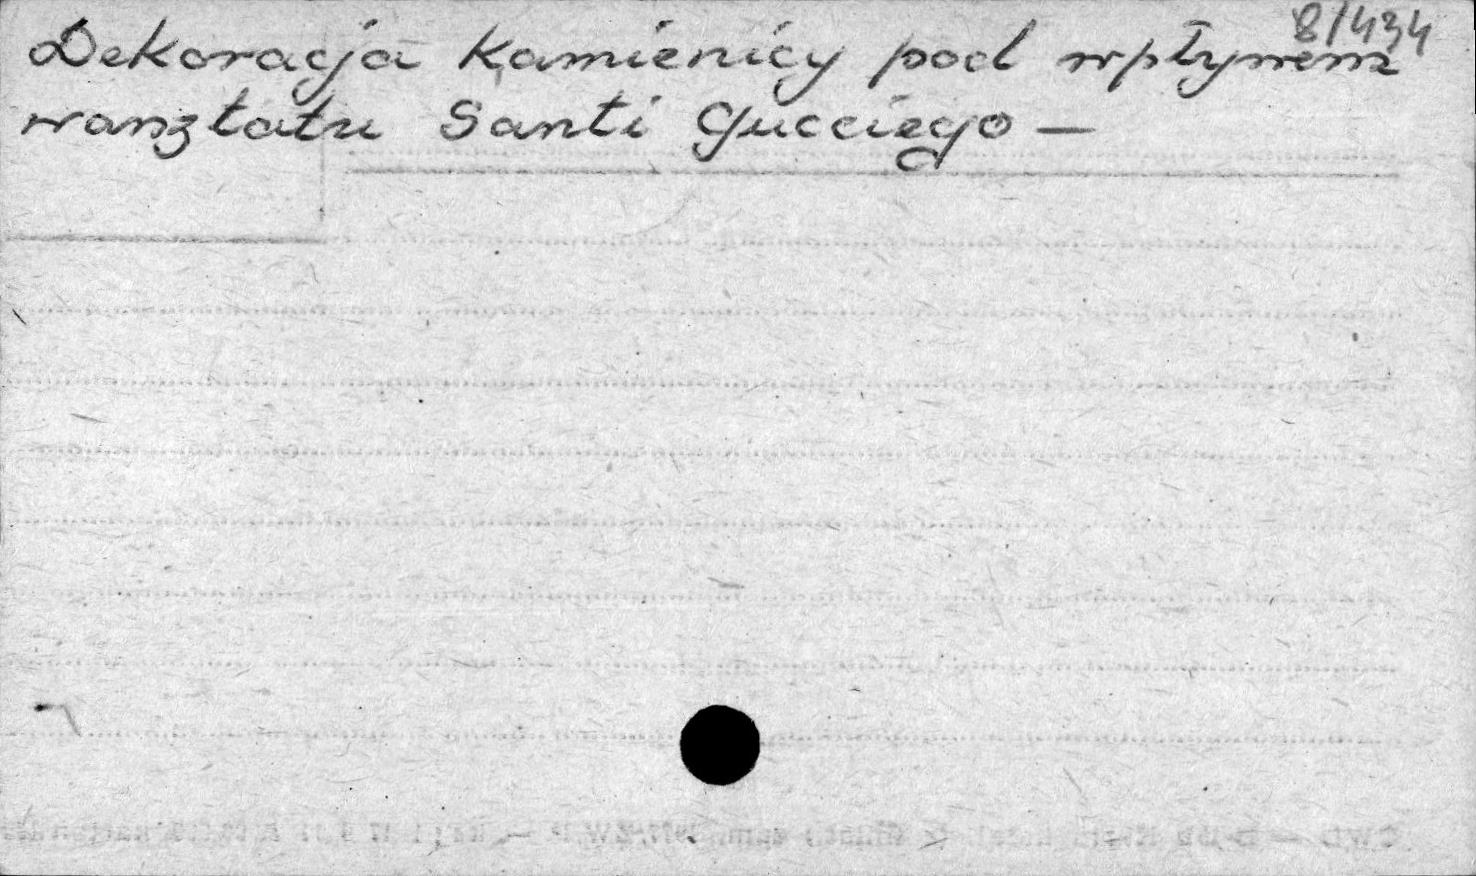 8/434
Dekoracja Kamienicy pod wpływem
warsztatu Santi Gucciego —